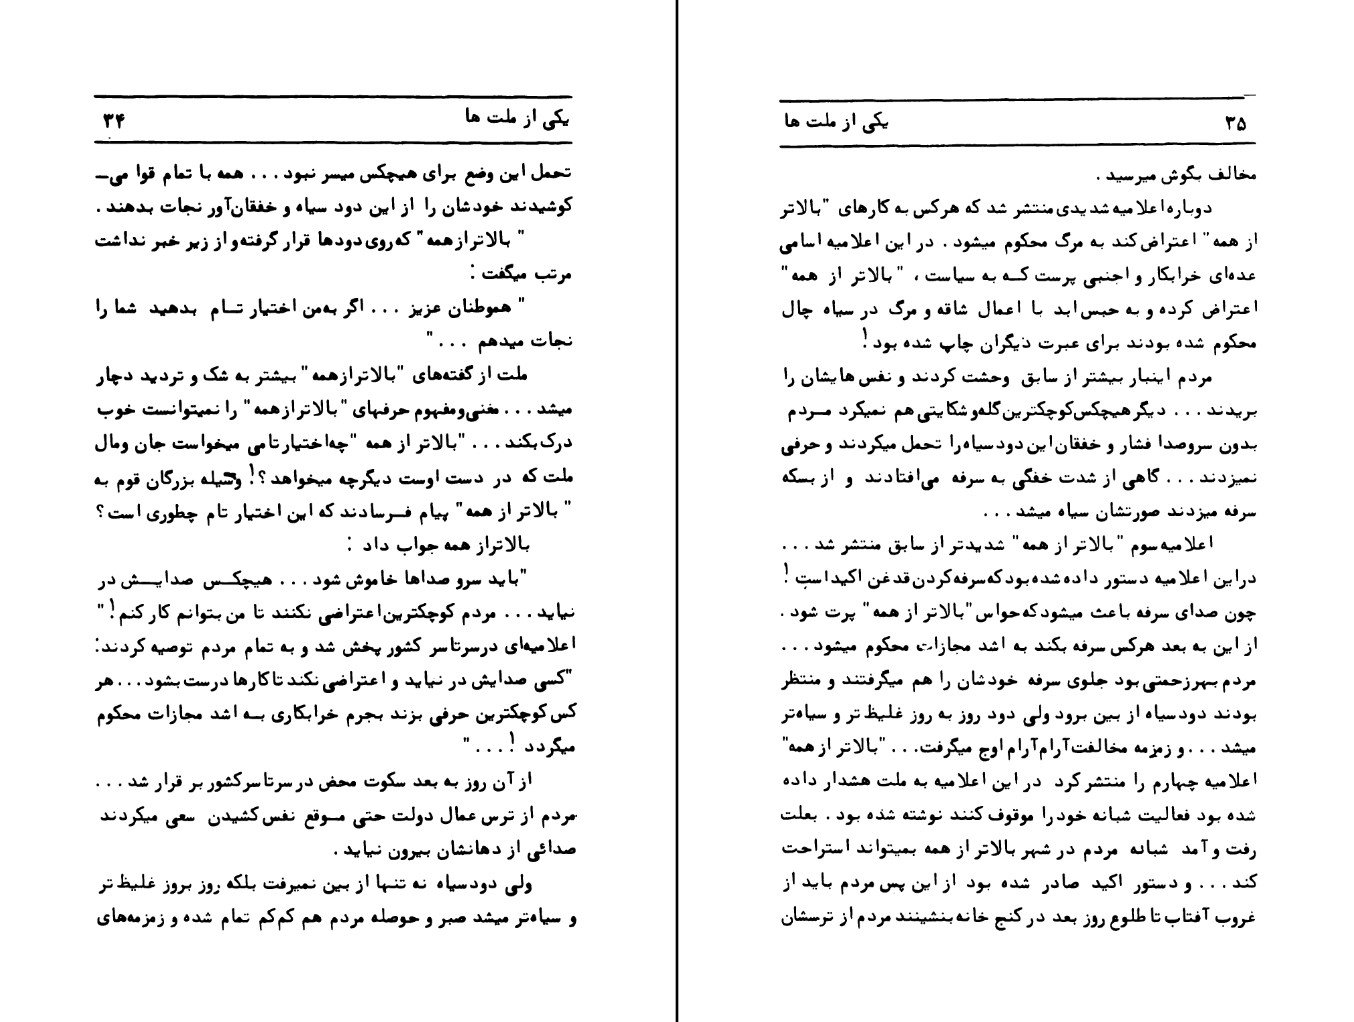 یکی از ملت ها ۳۴
تحمل این وضع برای هیچکس میسر نبود . . . همه با تمام قوا می‌ـ
کوشیدند خودشان را از این دود سیاه و خفقان‌آور نجات بدهند .
" بالاتر از همه " که روی دودها قرار گرفته و از زیر خبر نداشت
مرتب میگفت :
" هموطنان عزیز . . . اگر به‌من اختیار تــام بدهید شما را
نجات میدهم . . . "
ملت از گفته‌های " بالاتر از همه " بیشتر به شک و تردید دچار
میشد . . . معنی و مفهوم حرفهای " بالاتر از همه " را نمیتوانست خوب
درک بکند . . . " بالاتر از همه " چه اختیار تامی میخواست جان ومال
ملت که در دست اوست دیگرچه میخواهد ؟! وسیله بزرگان قوم به
" بالاتر از همه " پیام فــرسادند که این اختیار تام چطوری است ؟
بالاتراز همه جواب داد :
"باید سرو صداها خاموش شود . . . هیچکــس صدایــش در
نیاید . . . مردم کوچکترین اعتراضی نکنند تا من بتوانم کار کنم ! "
اعلامیه‌ای درسرتاسر کشور پخش شد و به تمام مردم توصیه کردند :
"کسی صدایش در نیاید و اعتراضی نکند تا کارها درست بشود . . . هر
کس کوچکترین حرفی بزند بجرم خرابکاری بــه اشد مجازات محکوم
میگردد ! . . . "
از آن روز به بعد سکوت محض در سرتاسر کشور بر قرار شد . . .
مردم از ترس عمال دولت حتی مــوقع نفس کشیدن سعی میکردند
صدائی از دهانشان بیرون نیاید .
ولی دودسیاه نه تنها از بین نمیرفت بلکه روز بروز غلیظ تر
و سیاه‌تر میشد صبر و حوصله مردم هم کم‌کم تمام شده و زمزمه‌های
یکی از ملت ها ۳۵
مخالف بگوش میرسید .
دوباره اعلامیه شدیدی منتشر شد که هرکس به کارهای "بالاتر
از همه " اعتراض کند به مرگ محکوم میشود . در این اعلامیه اسامی
عده‌ای خرابکار و اجنبی پرست کــه به سیاست ، " بالاتر از همه "
اعتراض کرده و به حبس ابد با اعمال شاقه و مرگ در سیاه چال
محکوم شده بودند برای عبرت دیگران چاپ شده بود !
مردم اینبار بیشتر از سابق وحشت کردند و نفس هایشان را
بریدند . . . دیگر هیچکس کوچکترین گله و شکایتی هم نمیکرد مــردم
بدون سروصدا فشار و خفقان این دود سیاه را تحمل میکردند و حرفی
نمیزدند . . . گاهی از شدت خفگی به سرفه می‌افتادند و از بسکه
سرفه میزدند صورتشان سیاه میشد . . .
اعلامیه سوم " بالاتر از همه " شدیدتر از سابق منتشر شد . . .
در این اعلامیه دستور داده شده بود که سرفه کردن قدغن اکید است !
چون صدای سرفه باعث میشود که حواس "بالاتر از همه " پرت شود .
از این به بعد هرکس سرفه بکند به اشد مجازات محکوم میشود . . .
مردم بهرزحمتی بود جلوی سرفه خودشان را هم میگرفتند و منتظر
بودند دودسیاه از بین برود ولی دود روز به روز غلیظ تر و سیاه‌تر
میشد . . . و زمزمه مخالفت آرام آرام اوج میگرفت . . . "بالاتر از همه"
اعلامیه چهارم را منتشر کرد در این اعلامیه به ملت هشدار داده
شده بود فعالیت شبانه خود را موقوف کنند نوشته شده بود . بعلت
رفت و آمد شبانه مردم در شهر بالاتر از همه نمیتواند استراحت
کند . . . و دستور اکید صادر شده بود از این پس مردم باید از
غروب آفتاب تا طلوع روز بعد در کنج خانه بنشینند مردم از ترسشان